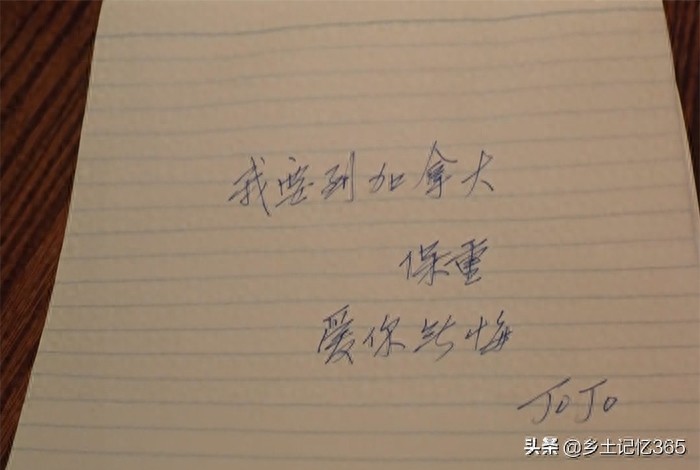 我要到加拿大
保重
爱你无悔
JOJO
头条 @乡土记忆365